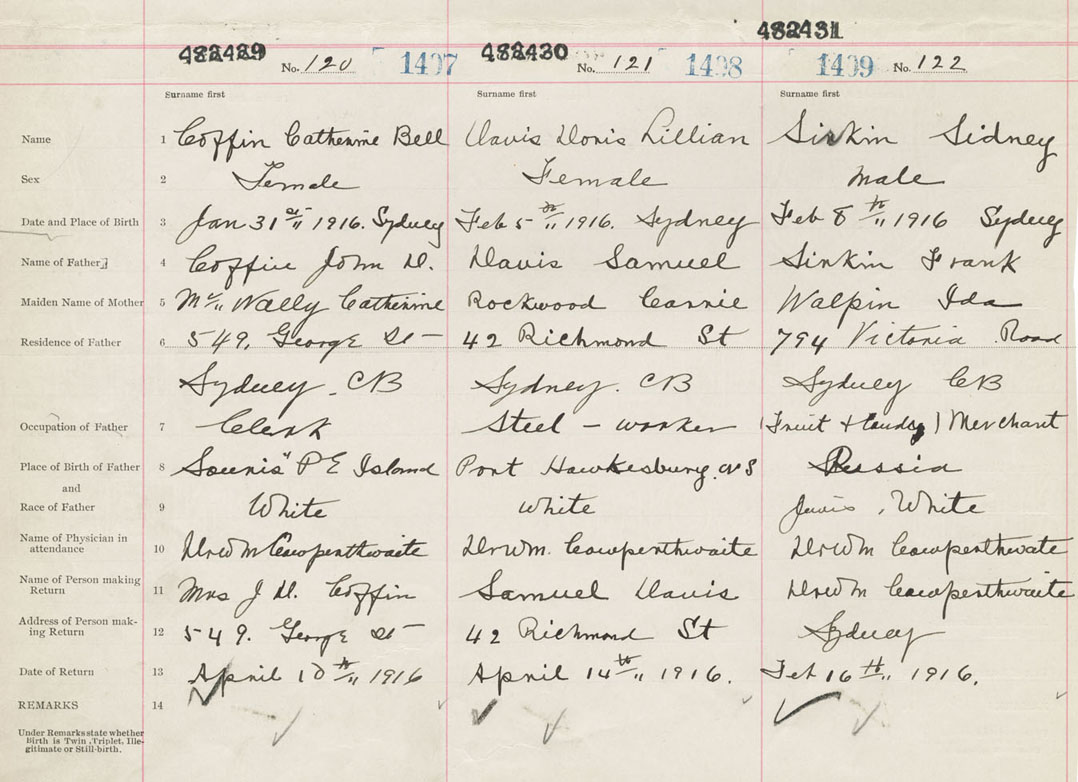 482429 482430 482431
No. 120 1407 No. 121 1408 1409 No. 122
Surname first Surname first Surname first
Name 1 Coffin Catherine Bell Davis Doris Lillian Sinkin Sidney
Sex 2 Female Female Male
Date and Place of Birth 3 Jan 31st 1916. Sydney Feb 5th 1916. Sydney Feb 8th 1916 Sydney
Name of Father 4 Coffin John D. Davis Samuel Sinkin Frank
Maiden Name of Mother 5 Mc Nally Catherine Rockwood Carrie Walpin Ida
Residence of Father 6 549. George St 42 Richmond St 794 Victoria Road
Sydney. CB Sydney. CB Sydney CB
Occupation of Father 7 Clerk Steel - worker (Fruit + Candy) Merchant
Place of Birth of Father 8 Souris" P E Island Port Hawkesbury. NS Russia
and
Race of Father 9 White White , White
Name of Physician in
attendance 10 Dr Wm Cowperthwaite Dr Wm. Cowperthwaite Dr Wm Cowperthwate
Name of Person making
Return 11 Mrs J D. Coffin Samuel Davis Dr Wm Cowperthwaite
Address of Person mak-
ing Return 12 549. George St 42 Richmond St Sydney
Date of Return 13 April 10th 1916 April 14th 1916. Feb 16th 1916.
REMARKS 14
Under Remarks state whether
Birth is Twin, Triplet, Ille-
gitimate or Still-birth.